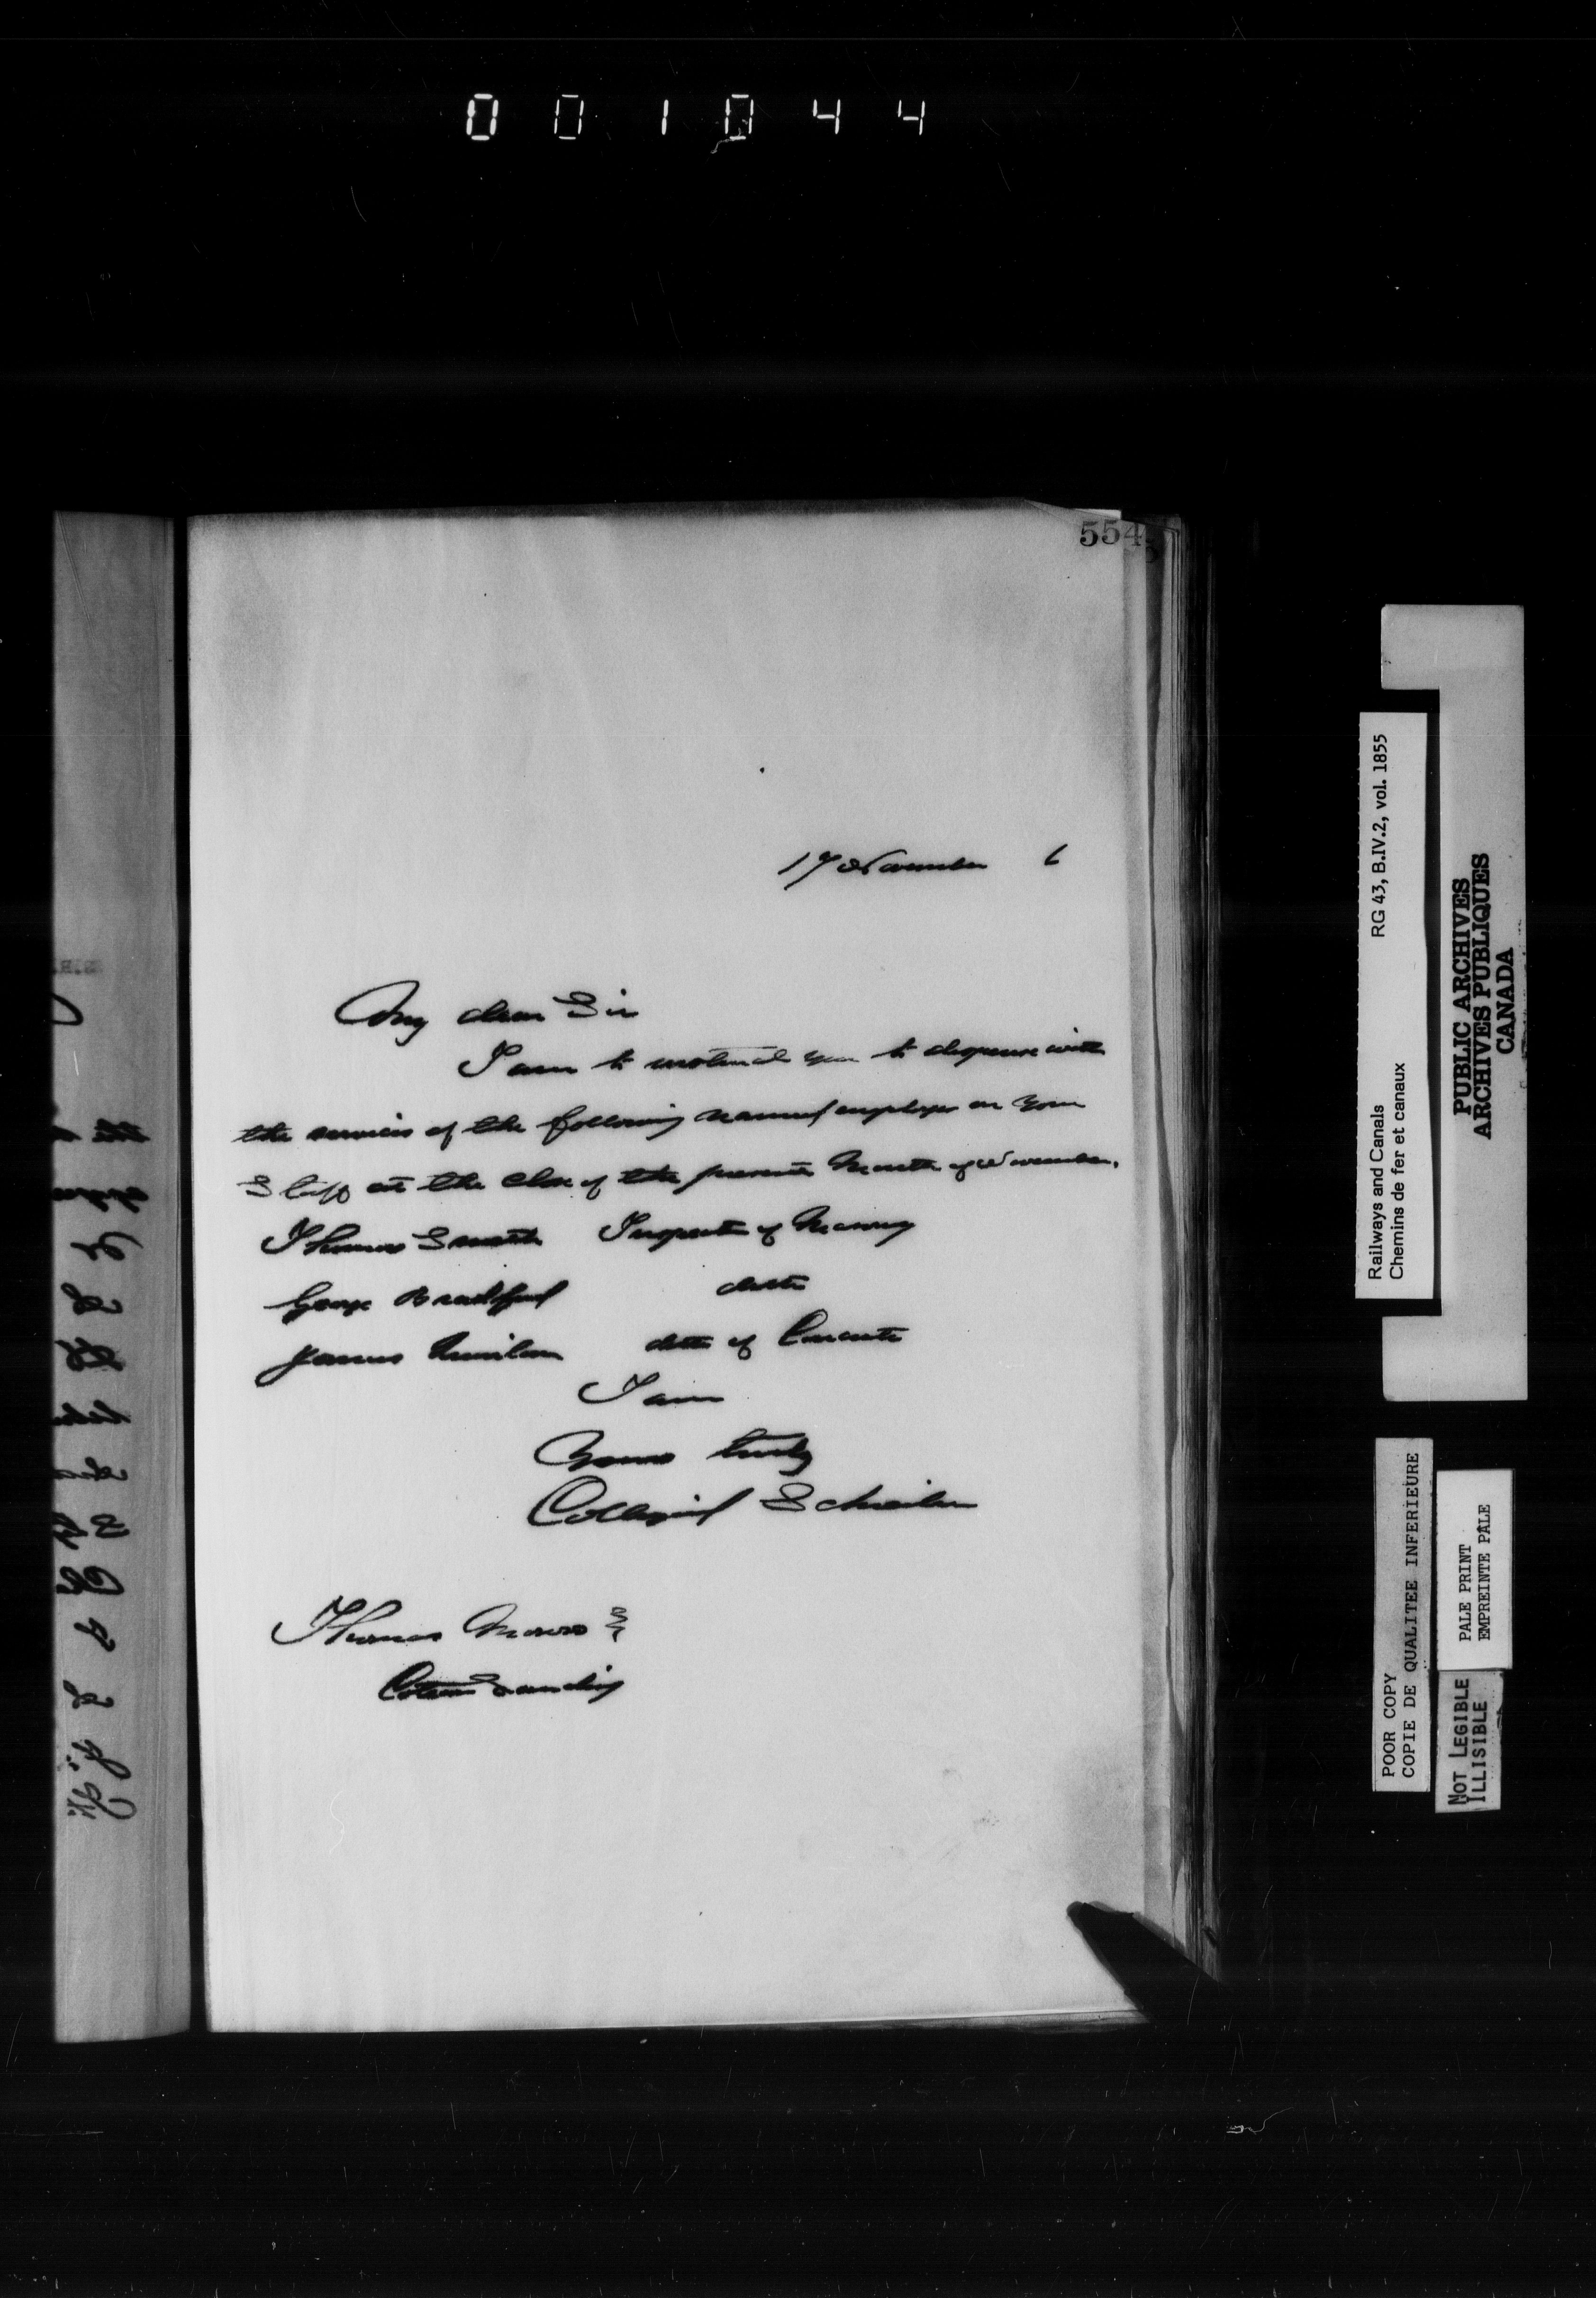 001044
554
17 November 6
My dear Sir
I am to instruct you to dispense with
the services of the following named employes on your
Staff at the close of the present Month of November.
Thomas Smith Inspector of Masonry
George Bradford ditto
James ditto of Concrete
I am
Yours truly
Collingwood Schreiber
Thomas Monro Esq
Coteau Landing
Railways and Canals RG 43, B.IV.2, vol. 1855
Chemins de fer et canaux
PUBLIC ARCHIVES
ARCHIVES PUBLIQUES
CANADA
POOR COPY
COPIE DE QUALITEE INFERIEURE
PALE PRINT
EMPREINTE PÂLE
NOT LEGIBLE
ILLISIBLE